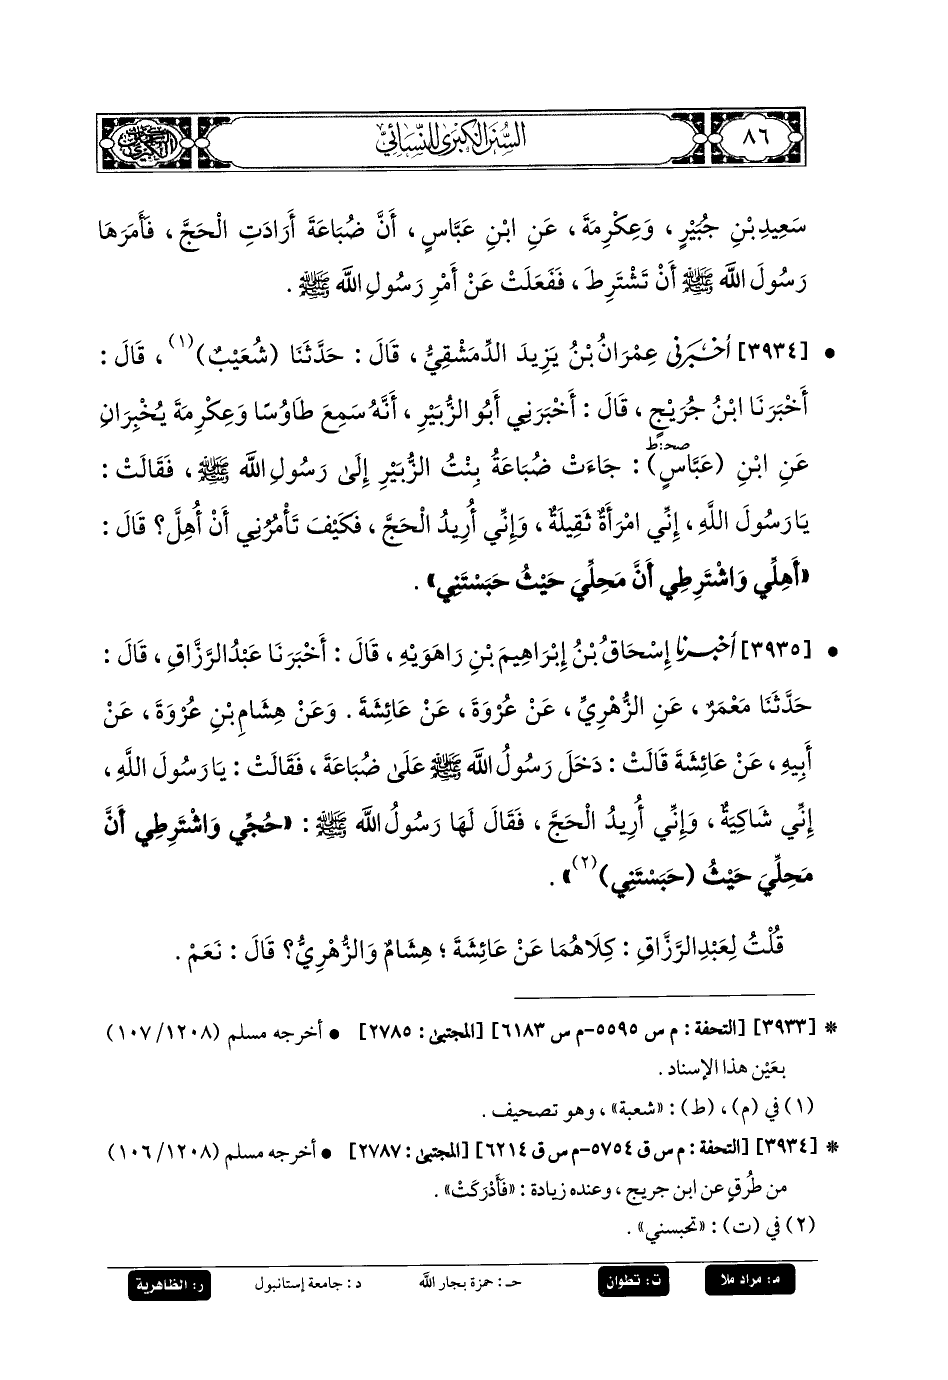 ٨٦
السنن الكبرى للنسائي
سَعِيدِ بْنِ جُبَيْرٍ ، وَعِكْرِمَةَ ، عَنِ ابْنِ عَبَّاسٍ ، أَنَّ ضُبَاعَةَ أَرَادَتِ الْحَجَّ ، فَأَمَرَهَا
رَسُولَ اللَّه ﷺ أَنْ تَشْتَرِطَ ، فَفَعَلَتْ عَنْ أَمْرِ رَسُولِ اللَّه ﷺ .
• [٣٩٣٤] أَخْبَرَنِي عِمْرَانُ بْنُ يَزِيدَ الدِّمَشْقِيُّ ، قَالَ : حَدَّثَنَا (شُعَيْبٌ)(١) ، قَالَ :
أَخْبَرَنَا ابْنُ جُرَيْجٍ ، قَالَ : أَخْبَرَنِي أَبُو الزُّبَيْرِ ، أَنَّهُ سَمِعَ طَاوُسًا وَعِكْرِمَةَ يُخْبِرَانِ
عَنِ ابْنِ (عَبَّاسٍ) : جَاءَتْ ضُبَاعَةُ بِنْتُ الزُّبَيْرِ إِلَىٰ رَسُولِ اللَّه ﷺ ، فَقَالَتْ :
يَا رَسُولَ اللَّهِ ، إِنِّي امْرَأَةٌ ثَقِيلَةٌ ، وَإِنِّي أُرِيدُ الْحَجَّ ، فَكَيْفَ تَأْمُرُنِي أَنْ أُهِلَّ؟ قَالَ :
«أَهِلِّي وَاشْتَرِطِي أَنَّ مَحِلِّيَ حَيْثُ حَبَسْتَنِي» .
• [٣٩٣٥] أَخْبَرَنَا إِسْحَاقُ بْنُ إِبْرَاهِيمَ بْنِ رَاهَوَيْهِ ، قَالَ : أَخْبَرَنَا عَبْدُ الرَّزَّاقِ ، قَالَ :
حَدَّثَنَا مَعْمَرٌ ، عَنِ الزُّهْرِيِّ ، عَنْ عُرْوَةَ ، عَنْ عَائِشَةَ . وَعَنْ هِشَامِ بْنِ عُرْوَةَ ، عَنْ
أَبِيهِ ، عَنْ عَائِشَةَ قَالَتْ : دَخَلَ رَسُولُ اللَّه ﷺ عَلَىٰ ضُبَاعَةَ ، فَقَالَتْ : يَا رَسُولَ اللَّهِ ،
إِنِّي شَاكِيَةٌ ، وَإِنِّي أُرِيدُ الْحَجَّ ، فَقَالَ لَهَا رَسُولُ اللَّه ﷺ : «حُجِّي وَاشْتَرِطِي أَنَّ
مَحِلِّيَ حَيْثُ (حَبَسْتَنِي)(٢)» .
قُلْتُ لِعَبْدِ الرَّزَّاقِ : كِلَاهُمَا عَنْ عَائِشَةَ ؛ هِشَامٌ وَالزُّهْرِيُّ؟ قَالَ : نَعَمْ .
* [٣٩٣٣] [التحفة : م س ٥٥٩٥-م س ٦١٨٣] [المجتبىٰ : ٢٧٨٥] • أخرجه مسلم (١٠٧/١٢٠٨)
بعَيْن هذا الإسناد .
(١) في (م) ، (ط) : «شعبة» ، وهو تصحيف .
* [٣٩٣٤] [التحفة : م س ق ٥٧٥٤-م س ق ٦٢١٤] [المجتبىٰ : ٢٧٨٧] • أخرجه مسلم (١٠٦/١٢٠٨)
من طُرقٍ عن ابن جريج ، وعنده زيادة : «فَأَدْرَكَتْ» .
(٢) في (ت) : «تحبسني» .
م: مراد ملا ت: تطوان حـ : حمزة بجار اللَّه د : جامعة إستانبول ر: الظاهرية